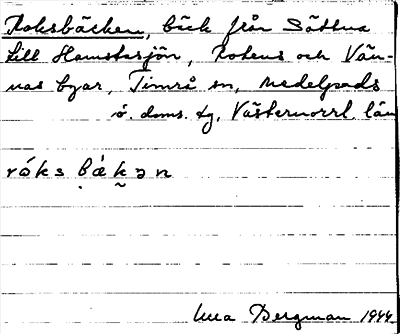 Roksbäcken, bäck från Sättna
till Hamstasjön, Rotens och Vän-
nas byar, Timrå sn, Medelpads
ö. doms. tg, Västernorrl. län
róks bækən
Ulla Bergman 1944